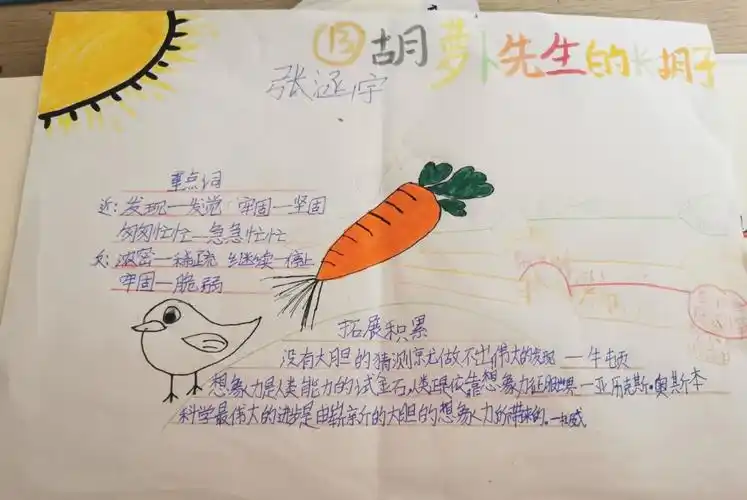 ⑬胡萝卜先生的长胡子
张涵宇
重点词
近：发现—发觉 牢固—坚固
匆匆忙忙—急急忙忙
反：浓密—稀疏 继续—停止
牢固—脆弱
拓展积累
没有大胆的猜测就做不出伟大的发现 —牛顿
想象力是人类能力的试金石,人类正是依靠想象力征服世界 —亚历克斯·奥斯本
科学最伟大的进步是由崭新的大胆的想象力所带来的。—杜威